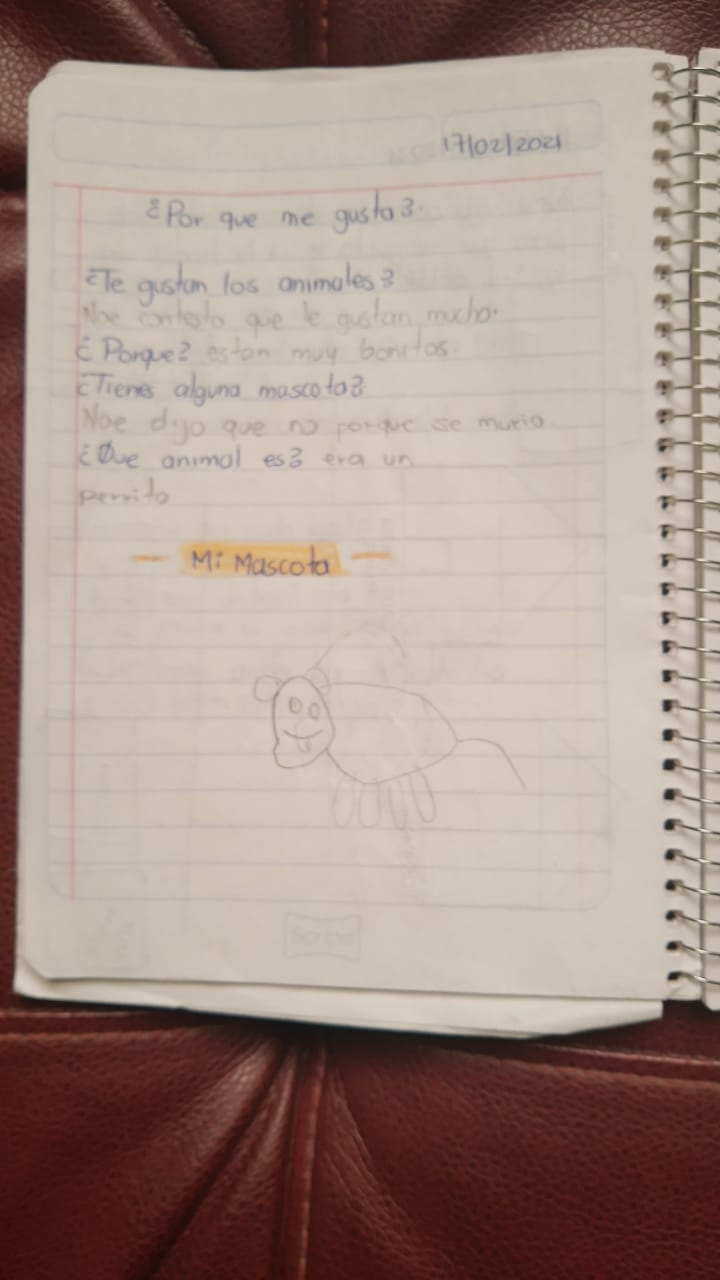 17/02/2021
¿Por que me gusta?.
¿Te gustan los animales?
Noe contesto que le gustan mucho.
¿Porque? estan muy bonitos
¿Tienes alguna mascota?
Noe dijo que no porque se murio
¿Que animal es? era un
perrito
— Mi Mascota —
Scribe